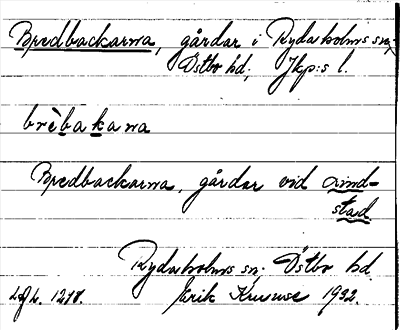 Bredbackarna, gårdar i Rydaholms sn;
Östbo hd; Jkp:s l.
brèbakana
Bredbackarna, gårdar vid Rind-
stad.
Rydaholms sn; Östbo hd.
Erik 1932.